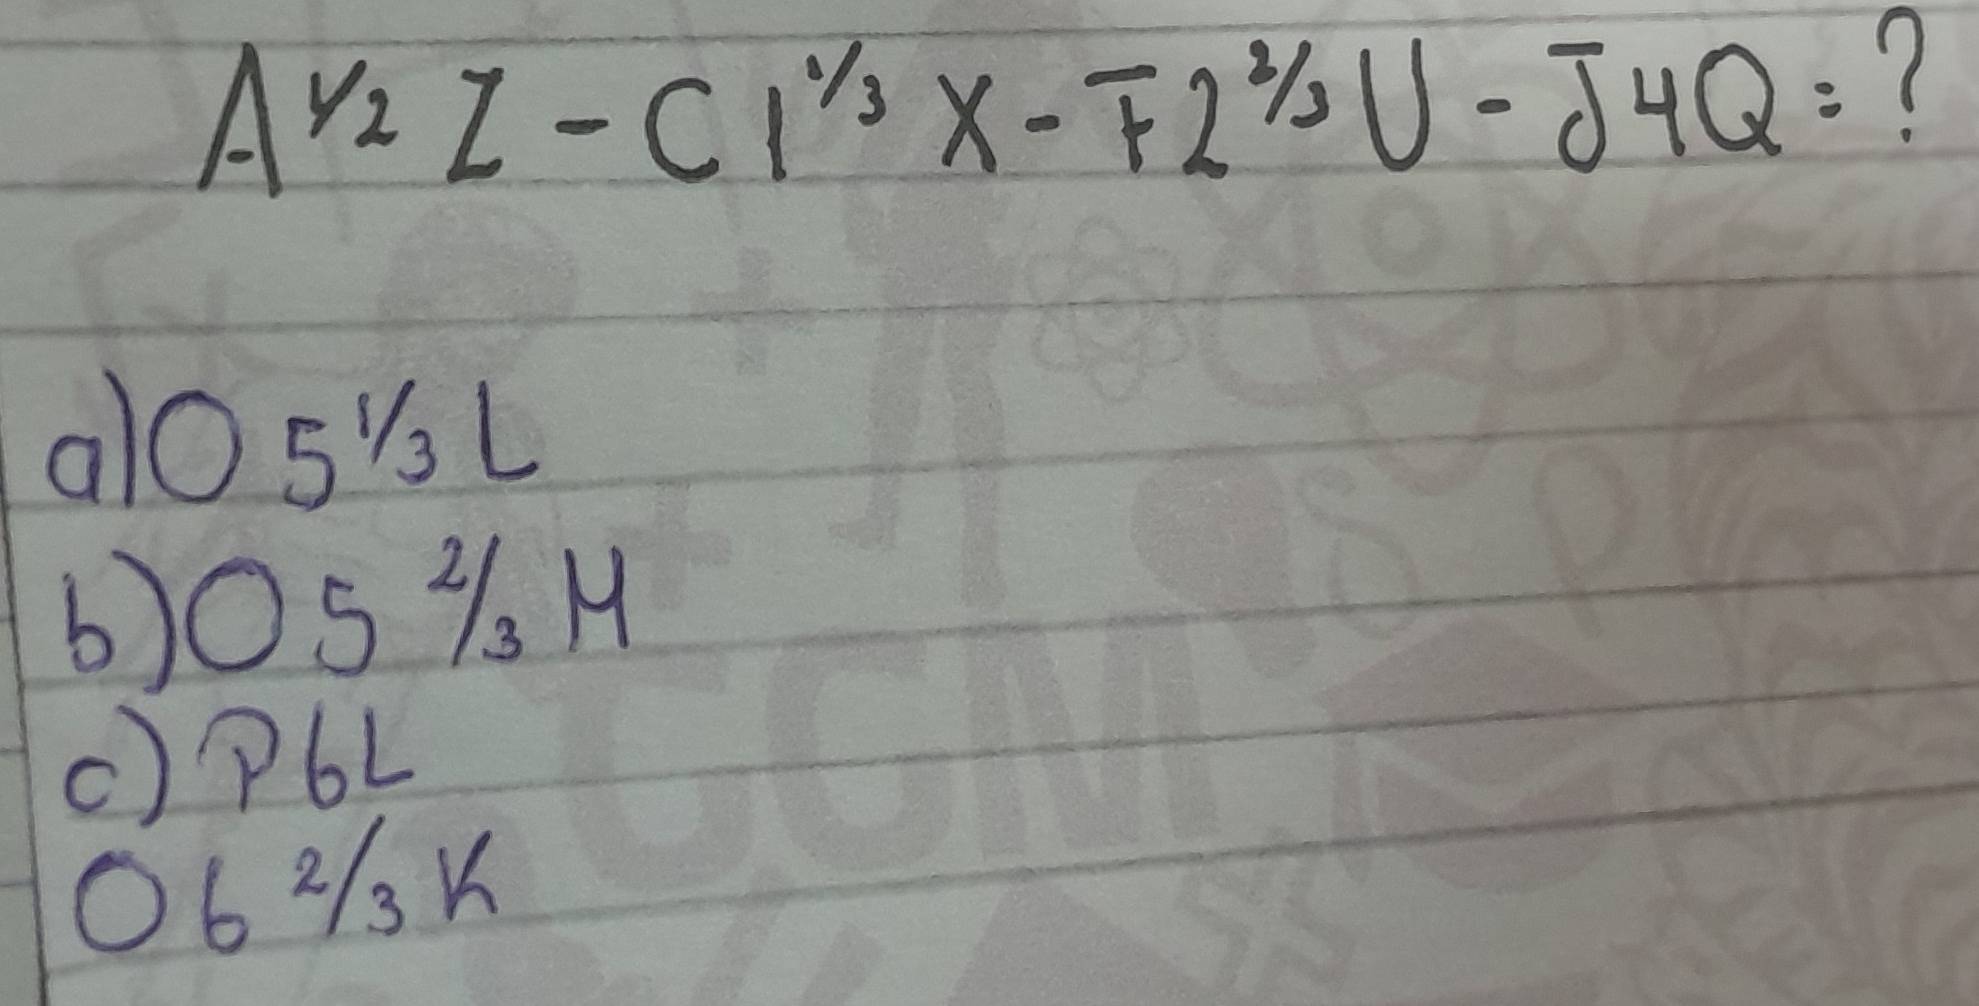 A 1/2 Z - C 1 1/3 X - F 2 2/3 U - J 4 Q = ?
a) O 5 1/3 L
b) O 5 2/3 M
c) P 6 L
O 6 2/3 K